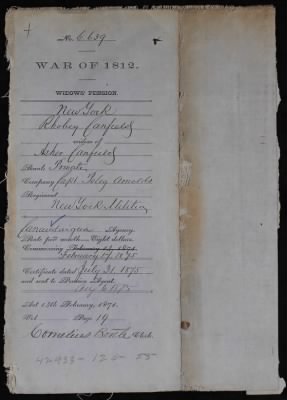 +
No. 6639
WAR OF 1812.
WIDOWS' PENSION.
New York
Rhobey Canfield
widow of
Asher Canfield
Rank, Private
Company Capt. Arnolds
Regiment
New York Militia
Canandaigua Agency.
Rate per month Eight dollars.
Commencing February 14, 1871.
February 17, 1875
Certificate dated July 31, 1875
and sent to Pension Agent
Act 14th February, 1871.
Vol. Page 19
Cornelius Clerk.
42933-125-55